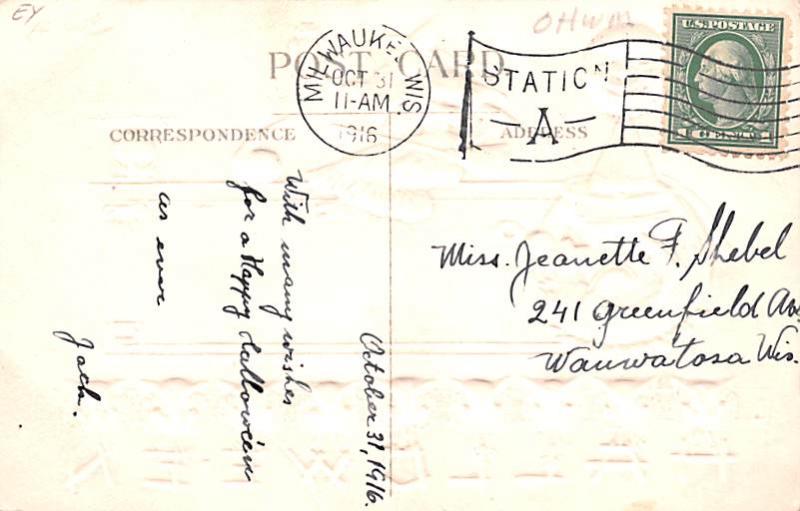 EY
OHWM
POST CARD
CORRESPONDENCE
ADDRESS
MILWAUKEE, WIS.
OCT 31
11-AM
1916
STATION
A
U.S. POSTAGE
October 31, 1916.
With many wishes
for a Happy Halloween
as ever
Jack.
Miss. Jeanette F. Shebel
241 Greenfield Ave
Wauwatosa Wis.